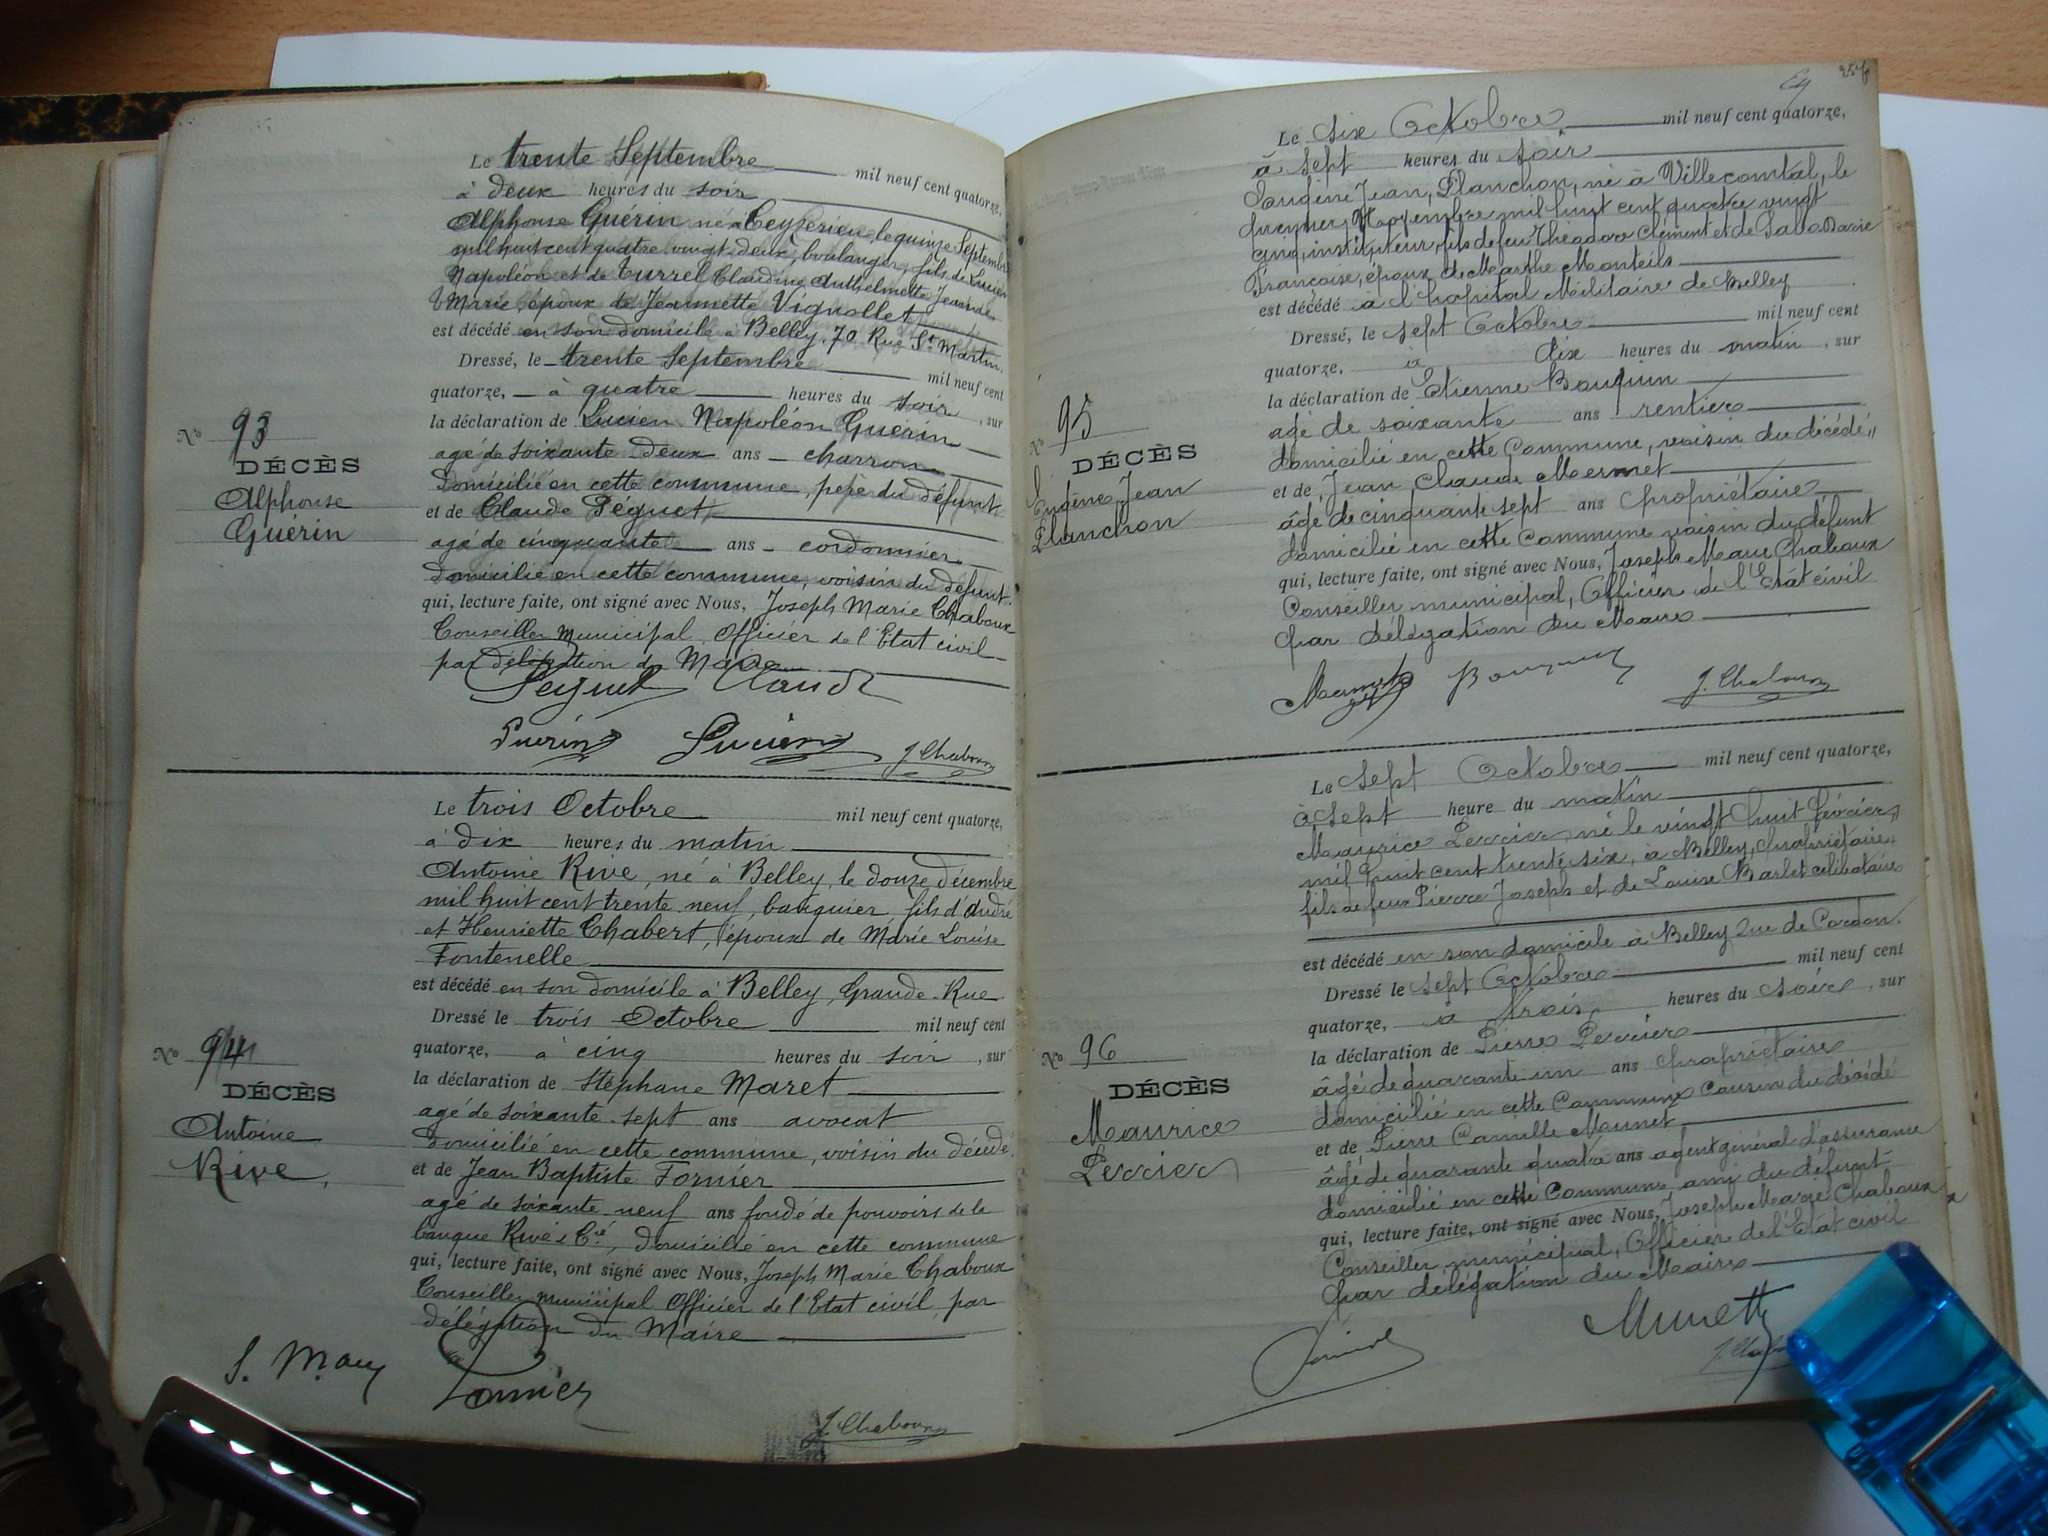 Le trente Septembre mil neuf cent quatorze,
à deux heures du soir
Alphonse Guérin né à Ceyzerieu, le quinze Septembre
mil huit cent quatre vingt deux, boulanger, fils de Lucien
Napoléon et de Turrel Claudine Anthelmette Jeanne
Marie, époux de Jeannette Vignollet
est décédé en son domicile à Belley, 70 Rue St Martin.
Dressé, le trente Septembre mil neuf cent
quatorze, à quatre heures du soir, sur
la déclaration de Lucien Napoléon Guérin
agé de soixante deux ans charron
domicilié en cette commune, père du défunt
et de Claude Péguet
agé de cinquante ans cordonnier
domicilié en cette commune, voisin du défunt.
qui, lecture faite, ont signé avec Nous, Joseph Marie Chaboux
Conseiller Municipal Officier de l'Etat civil
par délégation du Maire
No 93
DÉCÈS
Alphonse
Guérin
Peguet Claude
Guérin Lucien J. Chaboux
Le trois Octobre mil neuf cent quatorze,
à dix heures du matin
Antoine Rive, né à Belley, le douze décembre
mil huit cent trente neuf, banquier, fils d'André
et Henriette Chabert, époux de Marie Louise
Fontenelle
est décédé en son domicile à Belley, Grande Rue
Dressé le trois Octobre mil neuf cent
quatorze, à cinq heures du soir, sur
la déclaration de Stéphane Maret
agé de soixante sept ans avocat
domicilié en cette commune, voisin du décédé
et de Jean Baptiste Fornier
agé de soixante neuf ans fondé de pouvoirs de la
banque Rive & Cie, domicilié en cette commune
qui, lecture faite, ont signé avec Nous, Joseph Marie Chaboux
Conseiller municipal Officier de l'Etat civil, par
délégation du Maire
No 94
DÉCÈS
Antoine
Rive,
J. Chaboux
Le Six Octobre mil neuf cent quatorze,
à sept heures du soir
Eugène Jean, Planchon, né à Villecomtal, le
premier Novembre mil huit cent quatre vingt
cinq, instituteur, fils de feu Théodore Clément et de Marie
Françoise, époux de Marthe Monteils
est décédé a l'hopital Militaire de Belley
Dressé, le sept Octobre mil neuf cent
quatorze, a dix heures du matin, sur
la déclaration de Etienne Bouquin
agé de soixante ans rentier
domicilié en cette Commune, voisin du décédé
et de Jean Claude Mermet
âgé de cinquante sept ans propriétaire
domicilié en cette Commune voisin du défunt
qui, lecture faite, ont signé avec Nous, Joseph Marie Chaboux
Conseiller municipal, Officier de l'Etat civil
par délégation du Maire
No 95
DÉCÈS
Eugène Jean
Planchon
Mermet Bouquin J. Chaboux
Le Sept Octobre mil neuf cent quatorze,
à Sept heure du matin
Maurice Perrier, né le vingt huit février
mil huit cent trente six, à Belley, propriétaire,
fils de feu Pierre Joseph et de Louise Barlet célibataire
est décédé en son domicile à Belley Rue de Cordon.
Dressé le sept Octobre mil neuf cent
quatorze, à trois heures du soir, sur
la déclaration de Pierre Perrier
âgé de quarante un ans propriétaire
domicilié en cette Commune cousin du décédé
et de Pierre Camille Munet
âgé de quarante quatre ans agent général d'assurance
domicilié en cette Commune ami du défunt
qui, lecture faite, ont signé avec Nous, Joseph Marie Chaboux
Conseiller municipal, Officier de l'Etat civil
par délégation du Maire
No 96
DÉCÈS
Maurice
Perrier
Munet